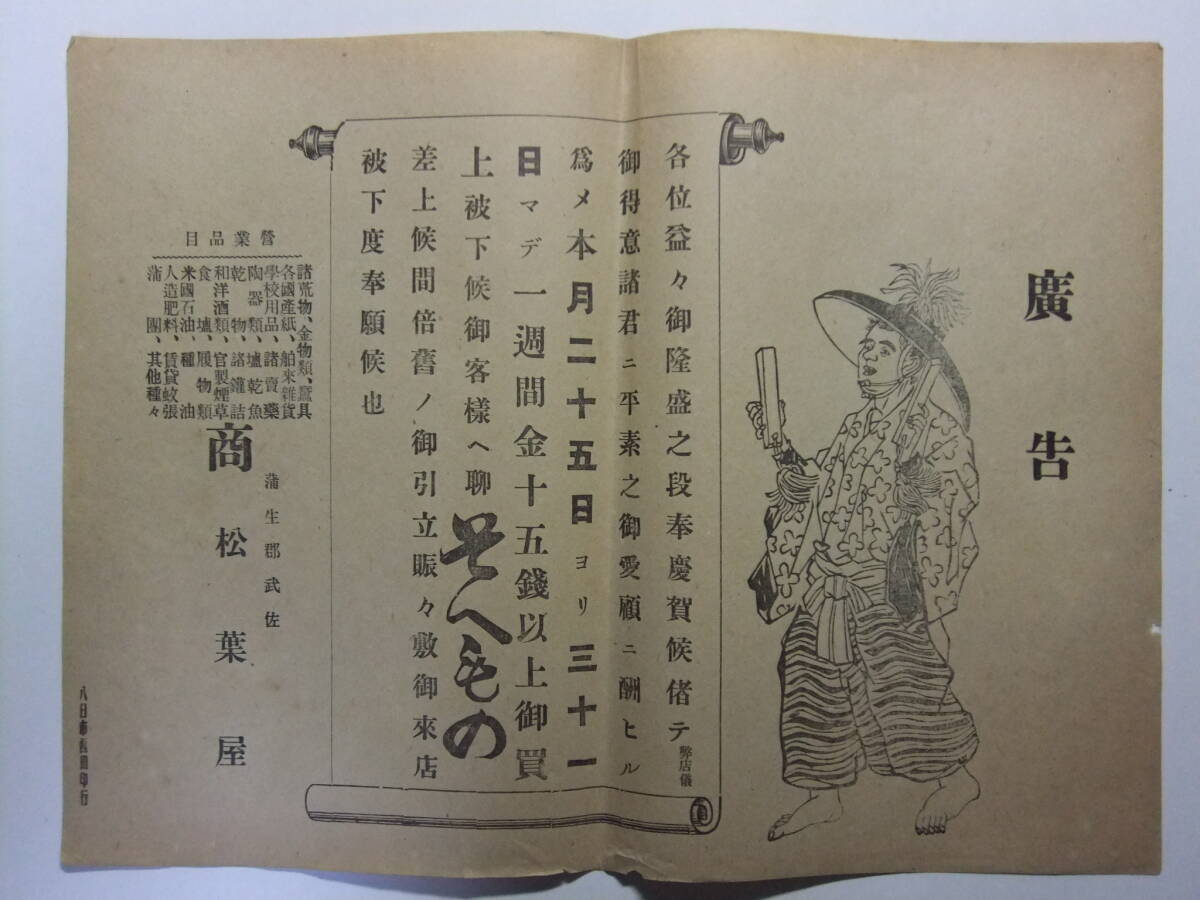 廣告
各位益々御隆盛之段奉慶賀候偖テ弊店儀
御得意諸君ニ平素之御愛顧ニ酬ヒル
爲メ本月二十五日ヨリ三十一
日マデ一週間金十五錢以上御買
上被下候御客樣ヘ聊そへもの
差上候間倍舊ノ御引立賑々敷御來店
被下度奉願候也
營業品目
諸荒物、金物類、蠶具
各國產紙、舶來雜貨
學校用品、諸賣藥
陶器類、壚乾魚
乾物、諸鑵詰
和洋酒類、官製煙草
食壚、履物類
米國石油、種油
人造肥料、賃貸蚊張
蒲團、其他種々
蒲生郡武佐
商松葉屋
八日市
印行